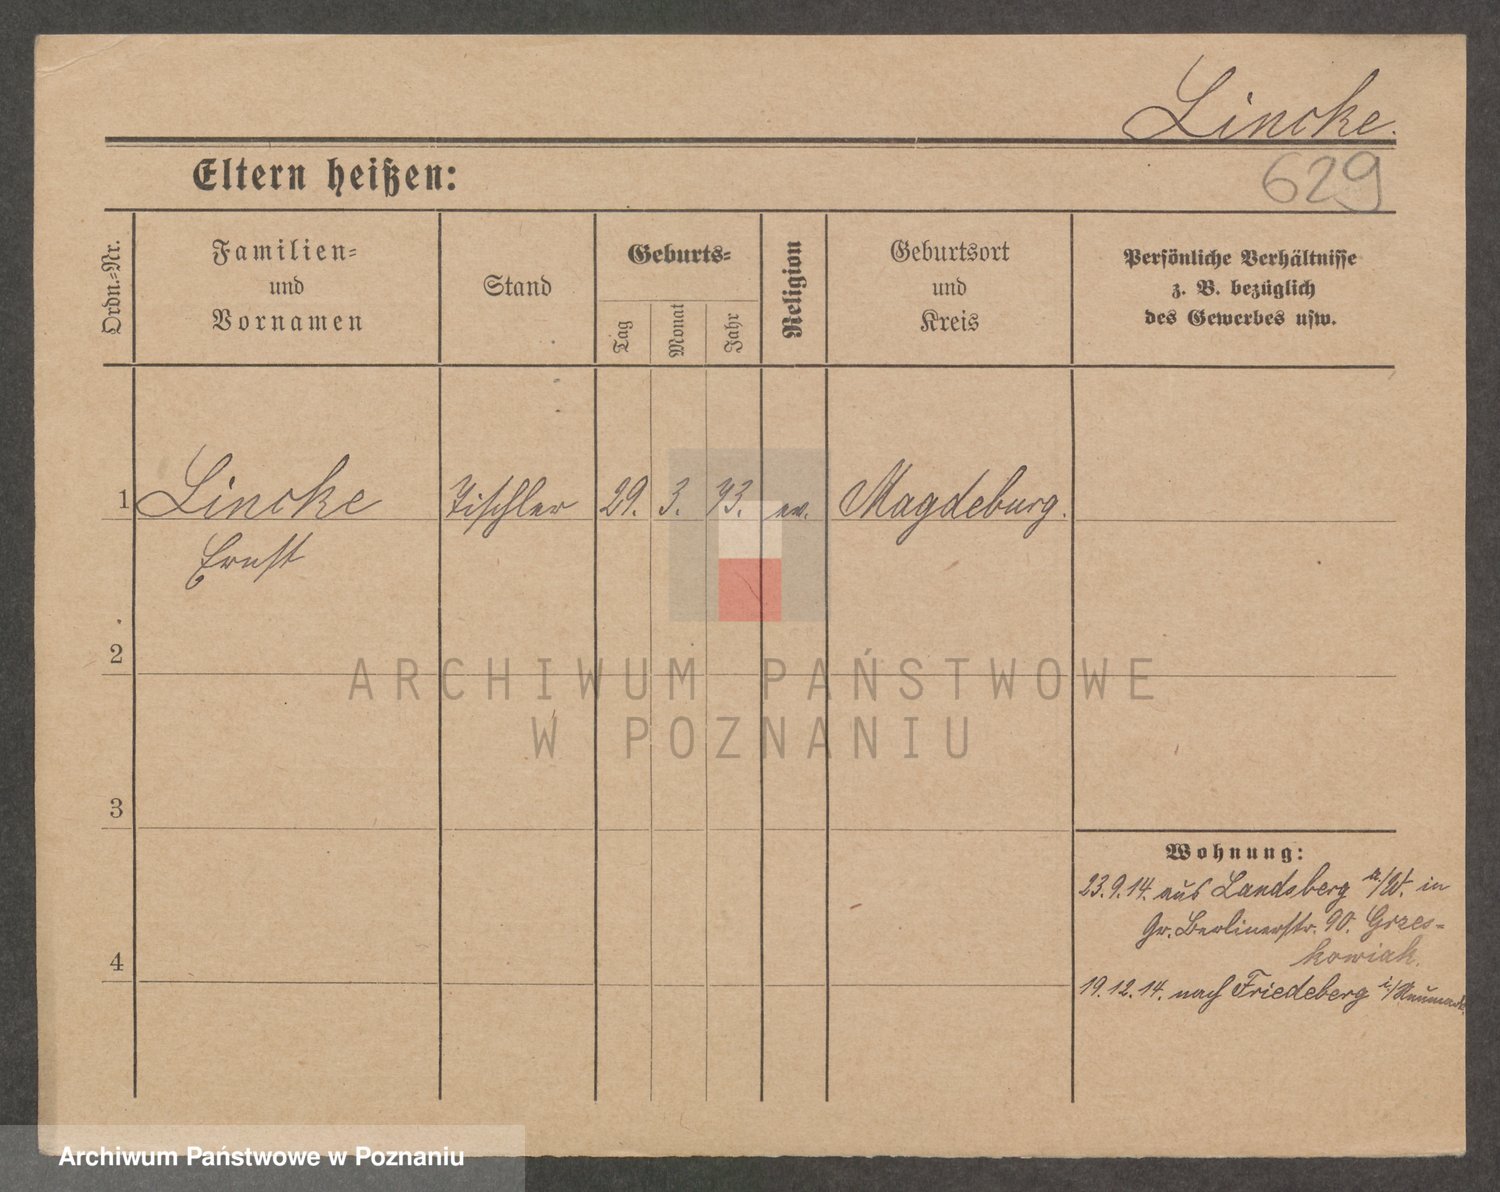 Lincke.
Eltern heißen:
629
Ordn.=Nr.
Familien=
und
Vornamen
Stand
Geburts=
Tag
Monat
Jahr
Religion
Geburtsort
und
Kreis
Persönliche Verhältnisse
z. B. bezüglich
des Gewerbes usw.
1 Lincke Tischler 29. 3. 73. ev. Magdeburg.
Ernst
2
ARCHIWUM PAŃSTWOWE
W POZNANIU
3
Wohnung:
23.9.14. aus Landsberg a./W. in
Gr. Berlinerstr. 90. Grzes-
kowiak.
4
19.12.14. nach Friedeberg i/Neumark.
Archiwum Państwowe w Poznaniu